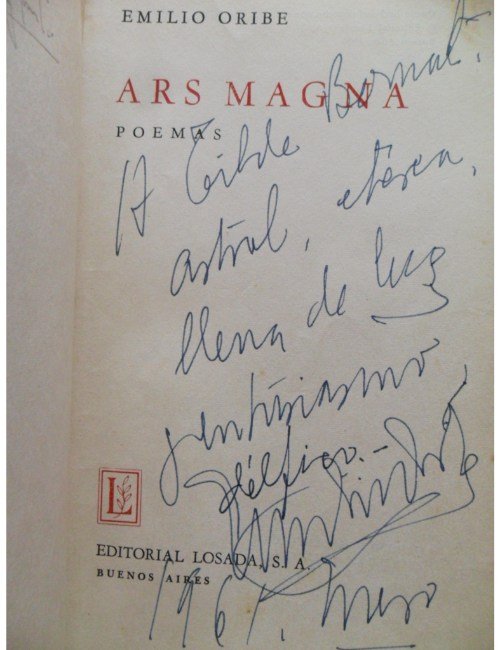 EMILIO ORIBE
ARS MAGNA
POEMAS
A Tilde
astral, etérea,
llena de luz
y entusiasmo
délfico.-
L
EDITORIAL LOSADA, S. A.
BUENOS AIRES